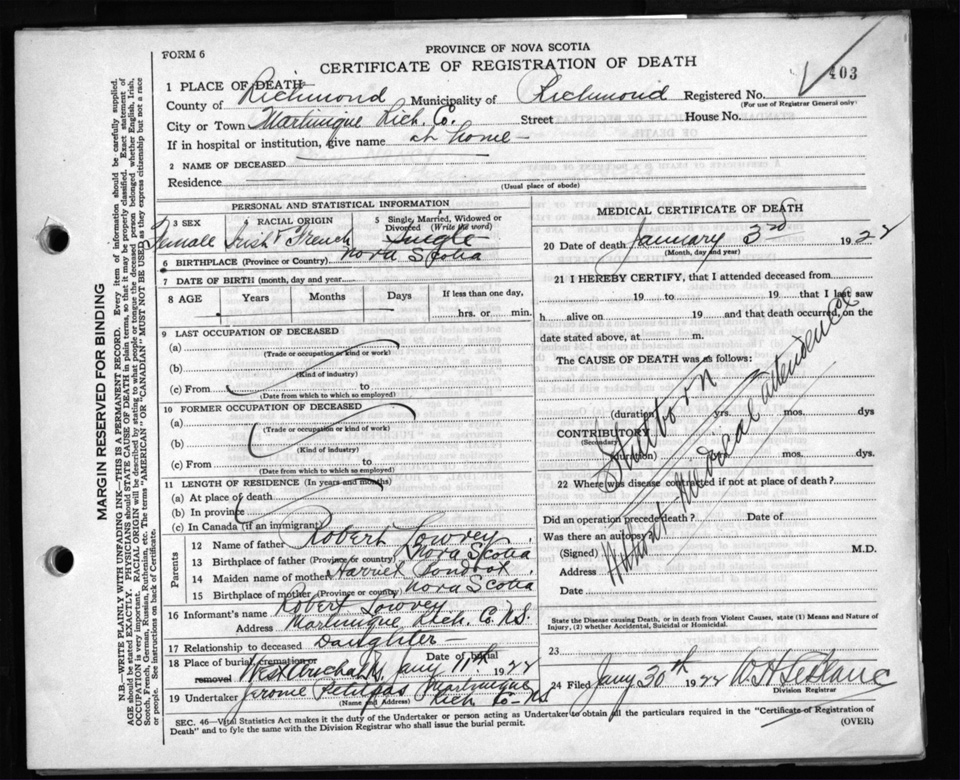 FORM 6
PROVINCE OF NOVA SCOTIA
CERTIFICATE OF REGISTRATION OF DEATH
403
1 PLACE OF DEATH
County of Richmond Municipality of Richmond Registered No.
(For use of Registrar General only)
City or Town Martinique Rich. Co. Street House No.
If in hospital or institution, give name at home
2 NAME OF DECEASED
Residence
(Usual place of abode)
PERSONAL AND STATISTICAL INFORMATION
3 SEX 4 RACIAL ORIGIN 5 Single, Married, Widowed or Divorced (Write the word)
Female Irish & French Single
6 BIRTHPLACE (Province or Country) Nova Scotia
7 DATE OF BIRTH (month, day and year)
8 AGE Years Months Days If less than one day,
hrs. or min.
9 LAST OCCUPATION OF DECEASED
(a)
(Trade or occupation or kind of work)
(b)
(Kind of industry)
(c) From to
(Date from which to which so employed)
10 FORMER OCCUPATION OF DECEASED
(a)
(Trade or occupation or kind of work)
(b)
(Kind of industry)
(c) From to
(Date from which to which so employed)
11 LENGTH OF RESIDENCE (In years and months)
(a) At place of death
(b) In province
(c) In Canada (if an immigrant)
Parents
12 Name of father Robert Lowrey
13 Birthplace of father (Province or country) Nova Scotia
14 Maiden name of mother Harriet
15 Birthplace of mother (Province or country) Nova Scotia
16 Informant's name Robert Lowrey
Address Martinique Rich. Co. N.S.
17 Relationship to deceased Daughter
18 Place of burial, cremation or removal West Arichat Date of burial Jany 1922
19 Undertaker Jerome Petitpas Martinique
(Name and Address) Rich Co N.S
MEDICAL CERTIFICATE OF DEATH
20 Date of death January 3rd 1922
(Month, day and year)
21 I HEREBY CERTIFY, that I attended deceased from
19 to 19 that I last saw
h alive on 19 and that death occurred, on the
date stated above, at m.
The CAUSE OF DEATH was as follows:
Stillborn
Without Medical attendence
(duration) yrs. mos. dys
CONTRIBUTORY
(Secondary)
(duration) yrs. mos. dys.
22 Where was disease contracted if not at place of death?
Did an operation precede death? Date of
Was there an autopsy
(Signed) M.D.
Address
Date
State the Disease causing Death, or in death from Violent Causes, state (1) Means and Nature of Injury, (2) whether Accidental, Suicidal or Homicidal.
23
24 Filed Jany 30th 1922 Le Blanc
Division Registrar
SEC. 46—Vital Statistics Act makes it the duty of the Undertaker or person acting as Undertaker to obtain all the particulars required in the "Certificate of Registration of
Death" and to fyle the same with the Division Registrar who shall issue the burial permit. (OVER)
MARGIN RESERVED FOR BINDING
N.B.—WRITE PLAINLY WITH UNFADING INK—THIS IS A PERMANENT RECORD. Every item of information should be carefully supplied.
AGE should be stated EXACTLY. PHYSICIANS should STATE CAUSE OF DEATH in plain terms, so that it may be properly classified. Exact statement of
OCCUPATION is very important. RACIAL ORIGIN will be described by stating to what people or tongue the deceased person belonged whether English, Irish,
Scotch, French, German, Russian, Ruthenian, etc. The terms "AMERICAN" OR "CANADIAN" MUST NOT BE USED as they express citizenship but not a race
or people. See instructions on back of Certificate.